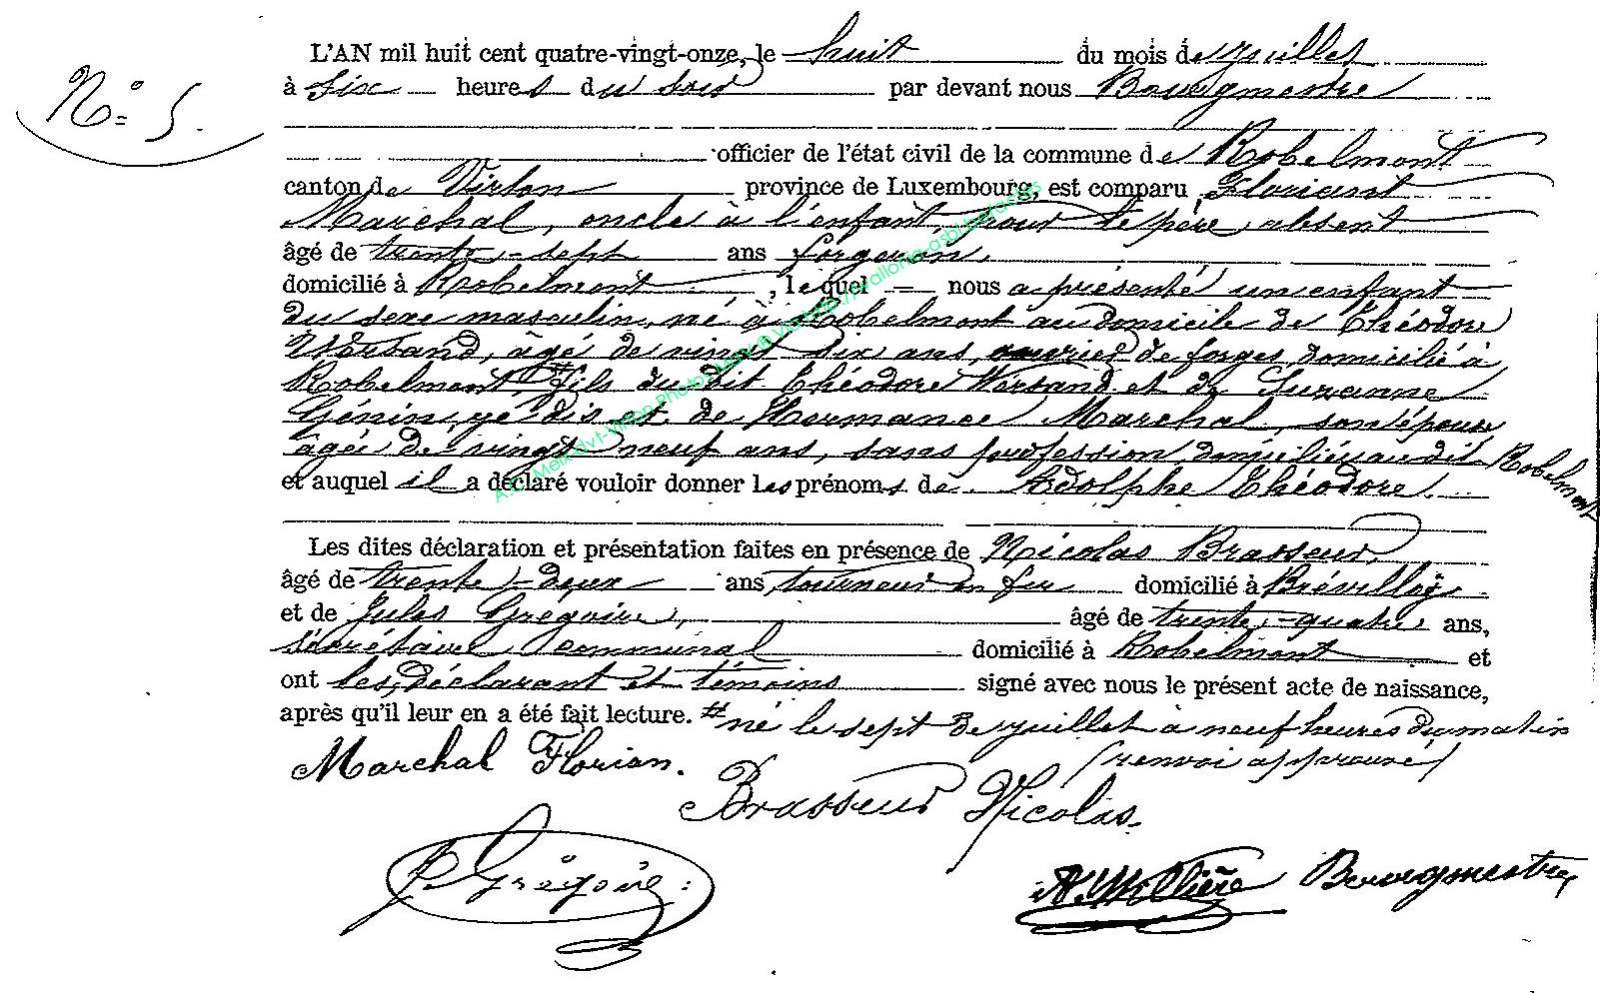 N° 5.
L'AN mil huit cent quatre-vingt-onze, le huit du mois de juillet
à six heures du soir par devant nous Bourgmestre
officier de l'état civil de la commune de Robelmont
canton de Virton province de Luxembourg, est comparu Floriant
Marchal, oncle à l'enfant, pour le père absent
âgé de trente-sept ans forgeron,
domicilié à Robelmont, lequel nous a présenté un enfant
du sexe masculin, né à Robelmont au domicile de Théodore
Wersand, âgé de vingt six ans, ouvrier de forges, domicilié à
Robelmont, # fils du dit Théodore Wersand et de Suzanne
Génin, je dis et de Hermance Marchal, son épouse
âgée de vingt neuf ans, sans profession, domiciliée au dit Robelmont
et auquel il a déclaré vouloir donner les prénoms de Adolphe Théodore.
Les dites déclaration et présentation faites en présence de Nicolas Brasseur,
âgé de trente-deux ans, tourneur en fer domicilié à
et de Jules Grégoire, âgé de trente-quatre ans,
secrétaire communal domicilié à Robelmont et
ont les déclarant et témoins signé avec nous le présent acte de naissance,
après qu'il leur en a été fait lecture. # né le sept de juillet à neuf heures du matin
(renvoi approuvé)
Marchal Florian.
Brasseur Nicolas.
J. Grégoire
Bourgmestre